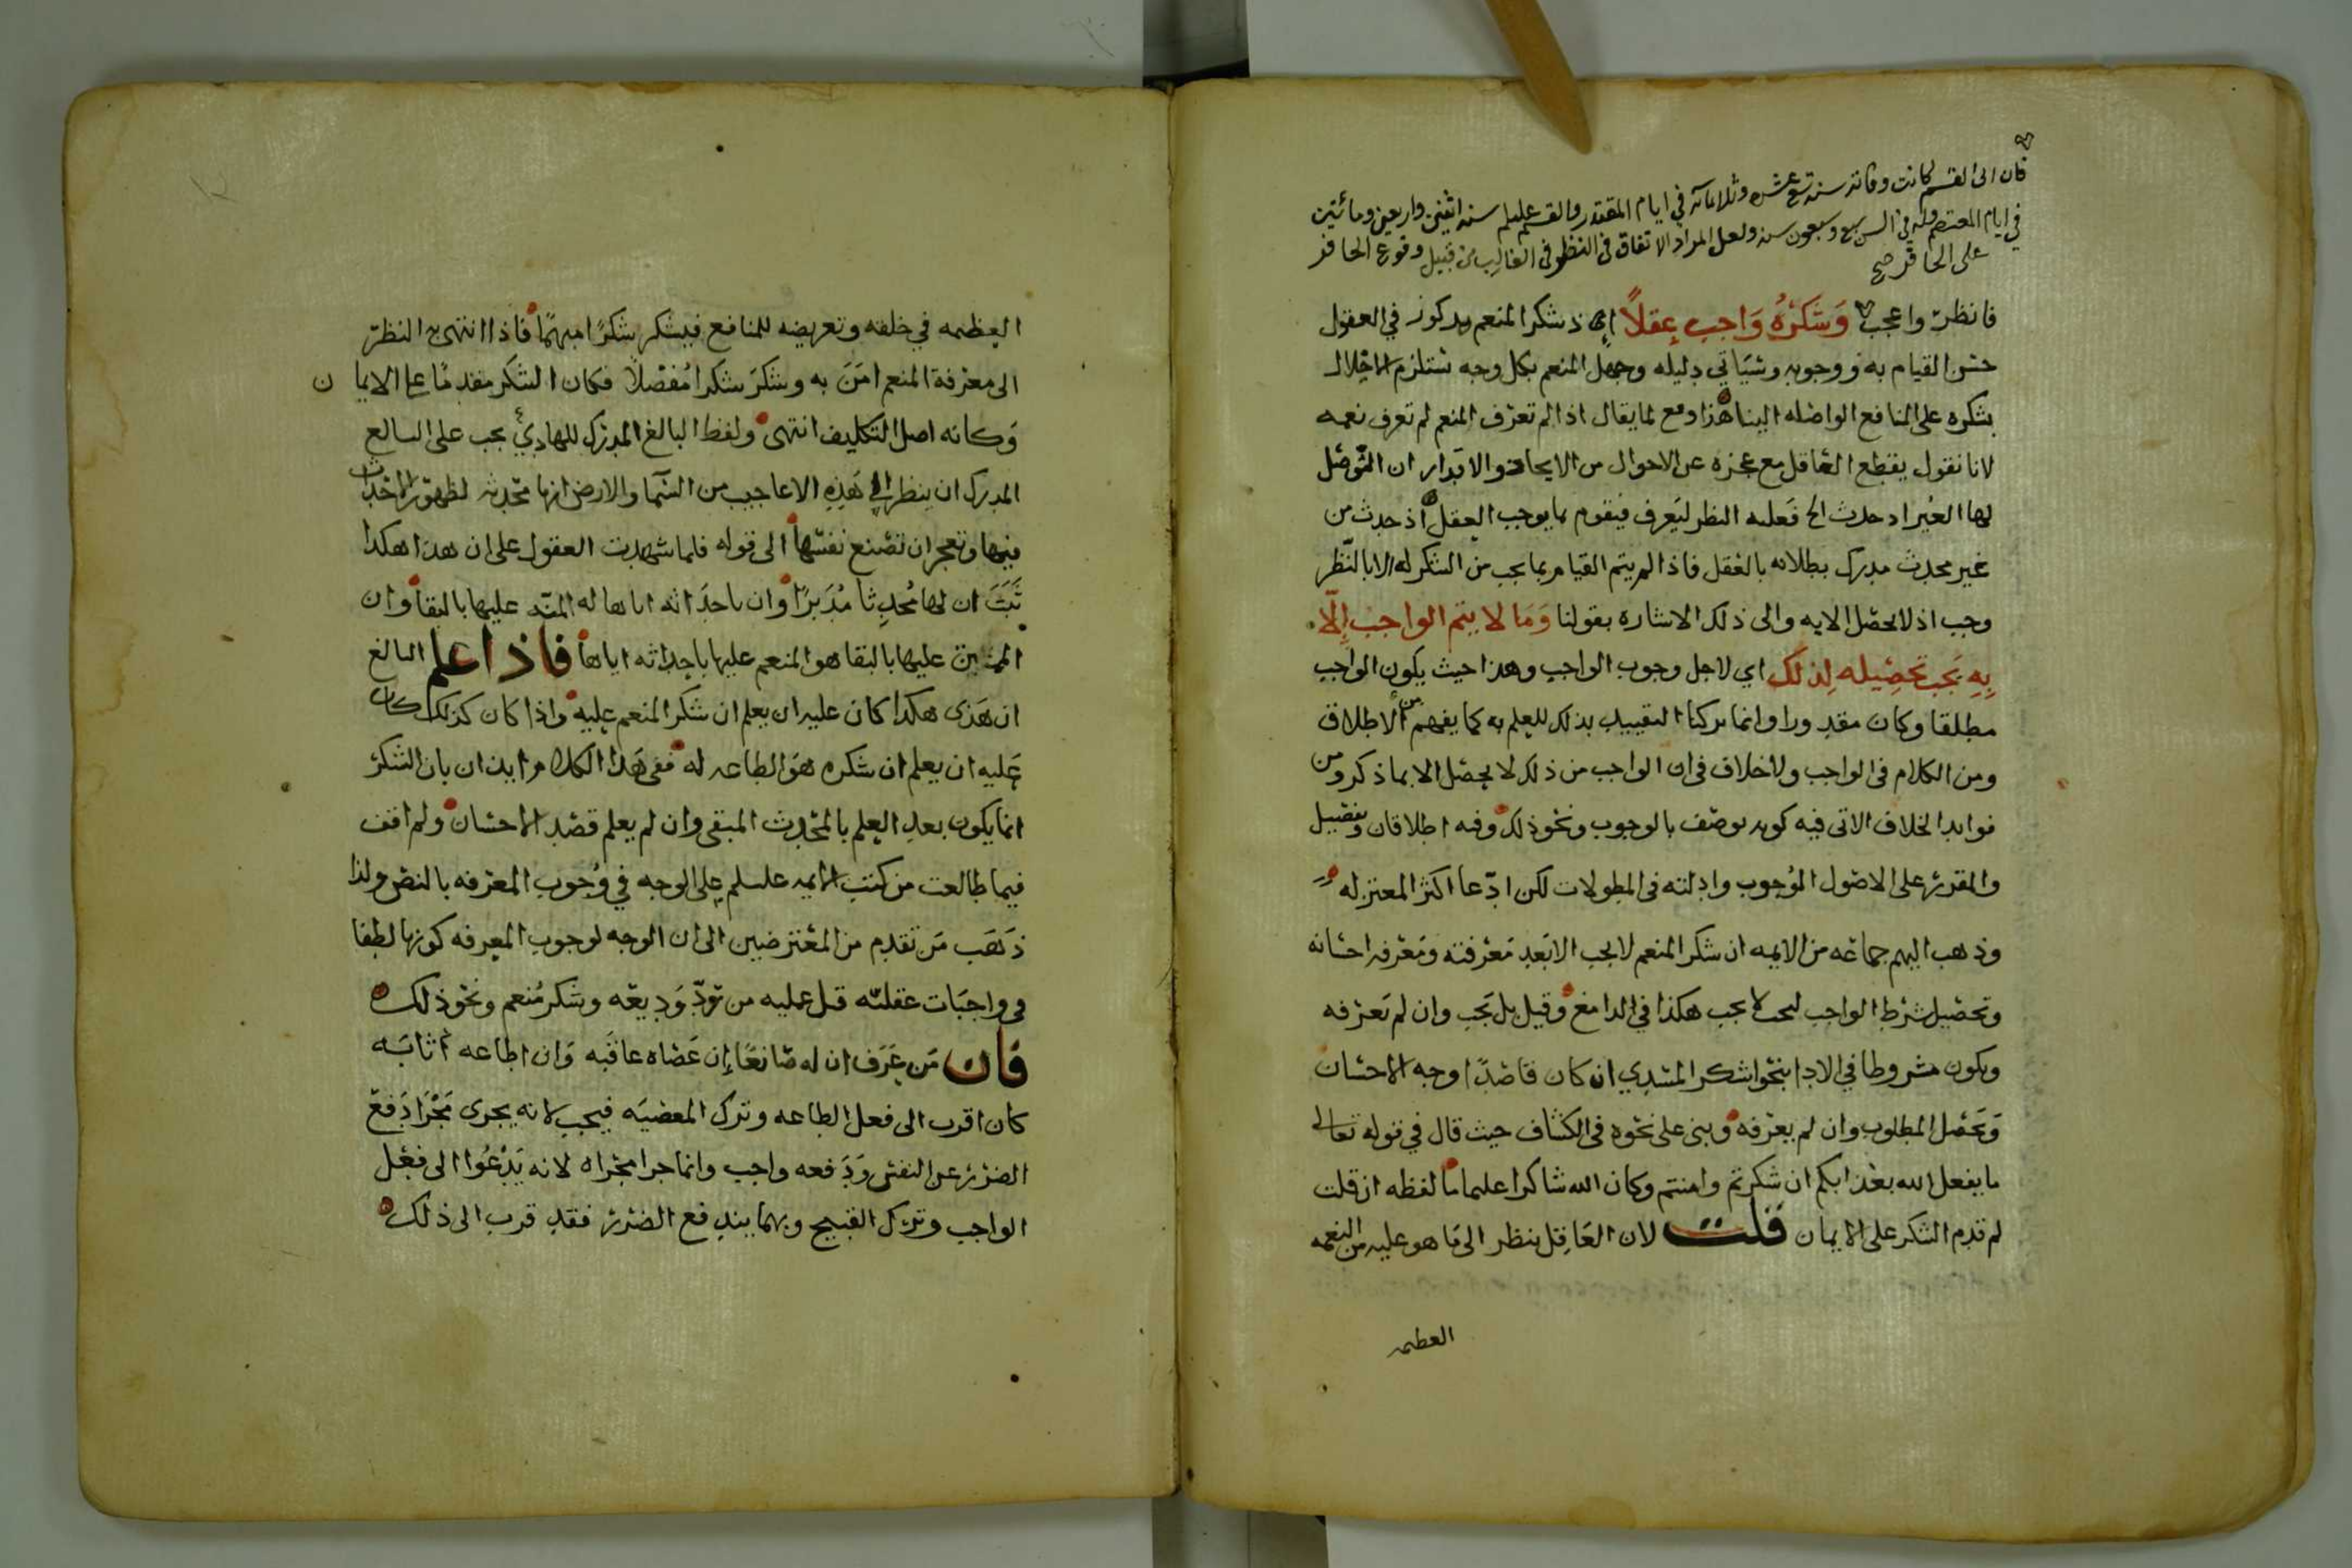 فان ابى القسم كانت وفاته سنه تسع عشره وثلاثمائه في ايام المقتدر والقسم عليلم سنه اثنين واربعين ومائتين
في ايام المعتصم وله في السن سبع وسبعون سنه ولعل المراد الاتفاق في النظر في الغالب من قبيل وقوع الحافر
على الحافر صح
فانظر واعجب وَشكرُهُ وَاجب عقلاً اذ شكر المنعم مركوز في العقول
حسن القيام به ووجوبه وسَيَاتي دليله وجهل المنعم بكل وجه يستلزم الاخلال
بشكره على المنافع الواصله الينا هذا دفع لما يقال اذا لم تعرف المنعم لم تعرف نعمه
لانا نقول يقطع العاقل مع عجزه عن الاحوال من الايجاد والاقدار ان الموصل
لها الغير اذ حدث الخ فعليه النظر ليَعرف فيقوم بما يوجب العقل اذ حدث من
غير محدث مدرك بطلانه بالعقل فاذا لم يتم القيام بما يجب من الشكر له الا بالنّظر
وجب اذ لا يحصل الا به والى ذلك الاشاره بقولنا وَمَا لا يتم الواجب اِلّا
بِهِ يَجب تحصِيله لِذلك اي لاجل وجوب الواجب وهذا حيث يكون الواجب
مطلقا وكان مقدورا وانما تركنا التقييد بذلك للعلم به كما يفهم من الاطلاق
ومن الكلام في الواجب ولا خلاف في ان الواجب من ذلك لا يحصل الا بما ذكر ومن
فوايد الخلاف الاتي فيه كونه يوصف بالوجوب ونحو ذلك وفيه اطلاقان وتفصيل
والمقرر على الاصول الوُجوب وادلته في المطولات لكن ادّعا اكثر المعتزله
وذهب اليهم جماعه من الايمه ان شكر المنعم لا يجب الا بَعد مَعرفته ومَعرفه احسانه
وتحصيل شرط الواجب ليجب لا يجب هكذا في الدامغ وقيل بل يَجب وان لم يَعرفه
ويكون مشروطا في الادا بنحو اشكر المسدي ان كان قاصدًا وجه الاحسان
وَيَحصل المطلوب وان لم يعرفه وبنى على نحوه في الكشاف حيث قال في قوله تعالى
ما يفعل الله بعذابكم ان شكرتم وامنتم وكان الله شاكرا عليما ما لفظه ان قلت
لم قدم الشكر على الايمان قلت لان العَاقِل ينظر الى مَا هو عليه من النعمه
العظيمه
العظيمه في خلقه وتعريضه للمنافع فيشكر شكرًا مبهمًا فاذا انتهى به النظر
الى معرفة المنعم امَنَ به وشكرَ شكرا مُفصّلا فكان الشكر مقدمًا على الايمان
وَكانه اصل التكليف انتهى ولفظ البالغ المدرك للهادي يجب على البالغ
المدرك ان ينظر الى هَذِهِ الاعاجيب من السّما والارض انها محدثه لظهور الاحداث
فيها وتعجز ان تصنع نفسَها الى قوله فلما شهدت العقول على ان هذا هكذا
ثَبَتَ ان لها مُحدِثا مُدَبرًا وان باحدَاثه اياها له المنّه عليها بالبقا وان
الممتن عليها بالبقا هو المنعم عليها باحداثه اياها فاذا علم البالغ
ان هَذى هكذا كان عليه ان يعلم ان شكر المنعم عليه واذا كان كذلك كان
عَليه ان يعلم ان شكره هو الطاعه له ففي هَذا الكلام ايذان بان الشكر
انما يكون بعد العِلم بالمحدث المبقي وان لم يعلم قصد الاحسان ولم اقف
فيما طالعت من كتب الايمه عليلم على الوجه في وُجوب المعرفه بالنص ولذا
ذَهَب مَن تقدم من المعترضين الى ان الوجه لوجوب المعرفه كونها لطفا
في واجبَات عقليّه قبل عمليه من تودّ وَديعه وشكر مُنعم ونحو ذلك
فان مَن عَرَف ان له صَانعًا اِن عَصَاه عاقبَه وَان اطاعه اثابَه
كان اقرب الى فعل الطاعه وترك المعصيَه فيجب لانه يجرى مَجْرَا دَفع
الضرر عن النفس وَدَفعه واجب وانما جرا مجراه لانه يَدْعُوا الى فعْل
الواجب وترك القبيح وبهما يندفع الضرر فقد قرب الى ذلك